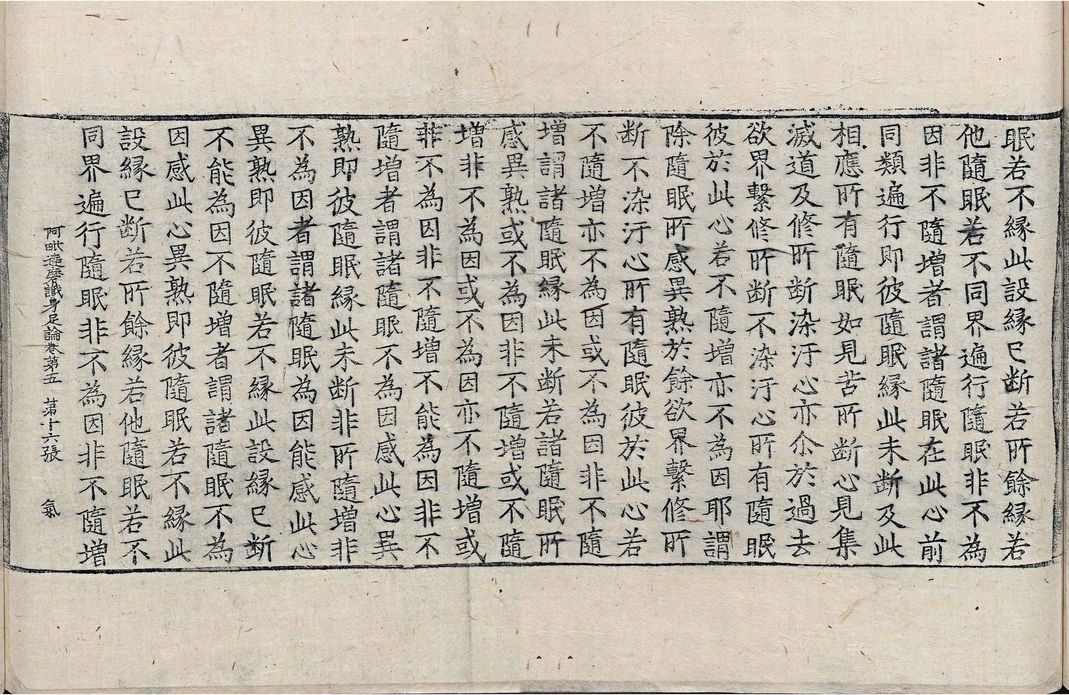 眠若不緣此設緣已断若所餘緣若
他隨眠若不同界遍行隨眠非不為
因非不隨增者謂諸隨眠在此心前
同類遍行即彼隨眠緣此未断及此
相應所有隨眠如見苦所断心見集
滅道及修所断染汙心亦尒於過去
欲界繫修所断不染汙心所有隨眠
彼於此心若不隨增亦不為因耶謂
除隨眠所感異熟於餘欲界繫修所
断不染汙心所有隨眠彼於此心若
不隨增亦不為因或不為因非不隨
增謂諸隨眠緣此未断若諸隨眠所
感異熟或不為因非不隨增或不隨
增非不為因或不為因亦不隨增或
非不為因非不隨增不能為因非不
隨增者謂諸隨眠不為因感此心異
熟即彼隨眠緣此未断非所隨增非
不為因者謂諸隨眠為因能感此心
異熟即彼隨眠若不緣此設緣已断
不能為因不隨增者謂諸隨眠不為
因感此心異熟即彼隨眠若不緣此
設緣已断若所餘緣若他隨眠若不
同界遍行隨眠非不為因非不隨增
阿毗達磨識身足論卷第五　第十六張　氣